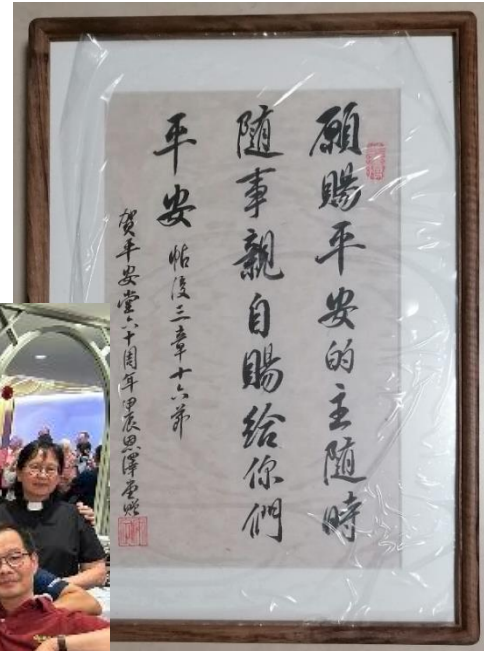 願賜平安的主隨時
隨事親自賜給你們
平安 帖後三章十六節
賀平安堂六十周年 甲辰 思澤堂贈